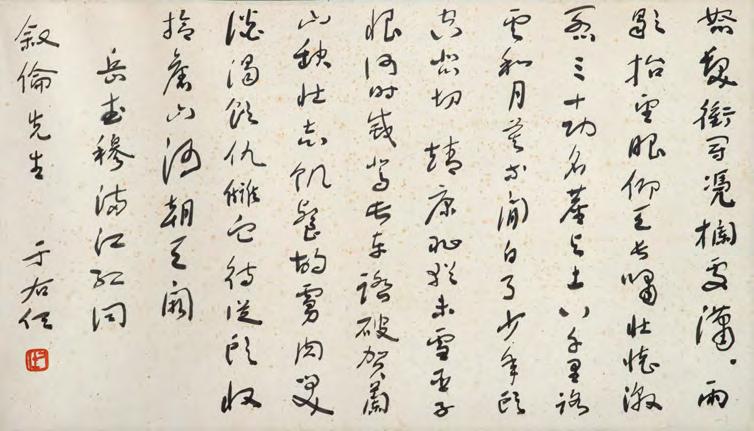 怒髮衝冠憑欄處瀟瀟雨
歇抬望眼仰天長嘯壯懷激
烈三十功名塵與土八千里路
雲和月莫等閒白了少年頭
空悲切 靖康恥猶未雪臣子
恨何時滅駕長車踏破賀蘭
山缺壯志飢餐胡虜肉笑
談渴飲仇讎血待從頭收
拾舊山河朝天闕
岳武穆滿江紅詞
叙倫先生 于右任